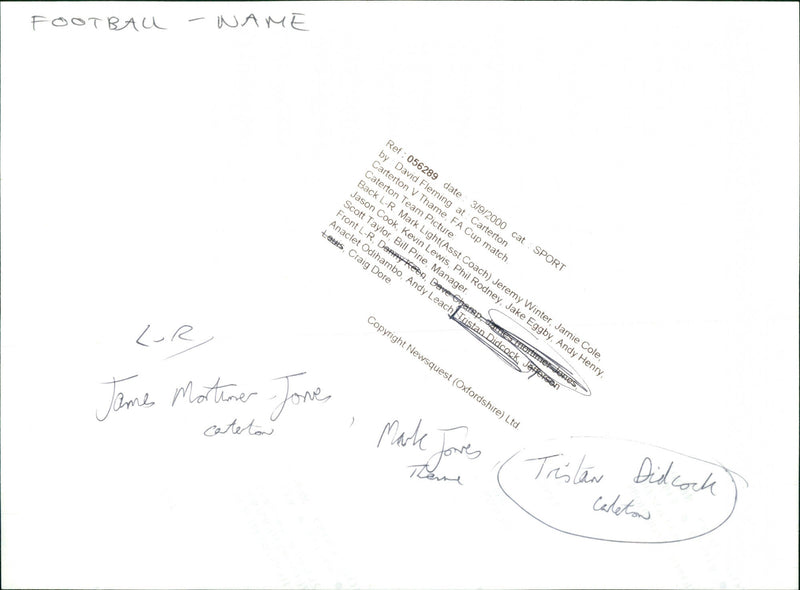 FOOTBALL - NAME
Ref : 056289 date : 3/9/2000 cat : SPORT
by : David Fleming at : Carterton
Carterton V Thame, FA Cup match
Caterton Team Picture
Back L-R, Mark Light(Asst.Coach) Jeremy Winter, Jamie Cole,
Jason Cook, Kevin Lewis, Phil Rodney, Jake Eggby, Andy Henry,
Scott Taylor, Bill Pine, Manager
Front L-R, Danny Keen, Dave Champ, James mortimer Jones,
Anaclet Odihambo, Andy Leach, Tristan Didcock,
Louis, Craig Dore
Copyright Newsquest (Oxfordshire) Ltd
L-R
James Mortimer-Jones
Carterton
, Mark Jones,
Thame
Tristan Didcock
Carterton